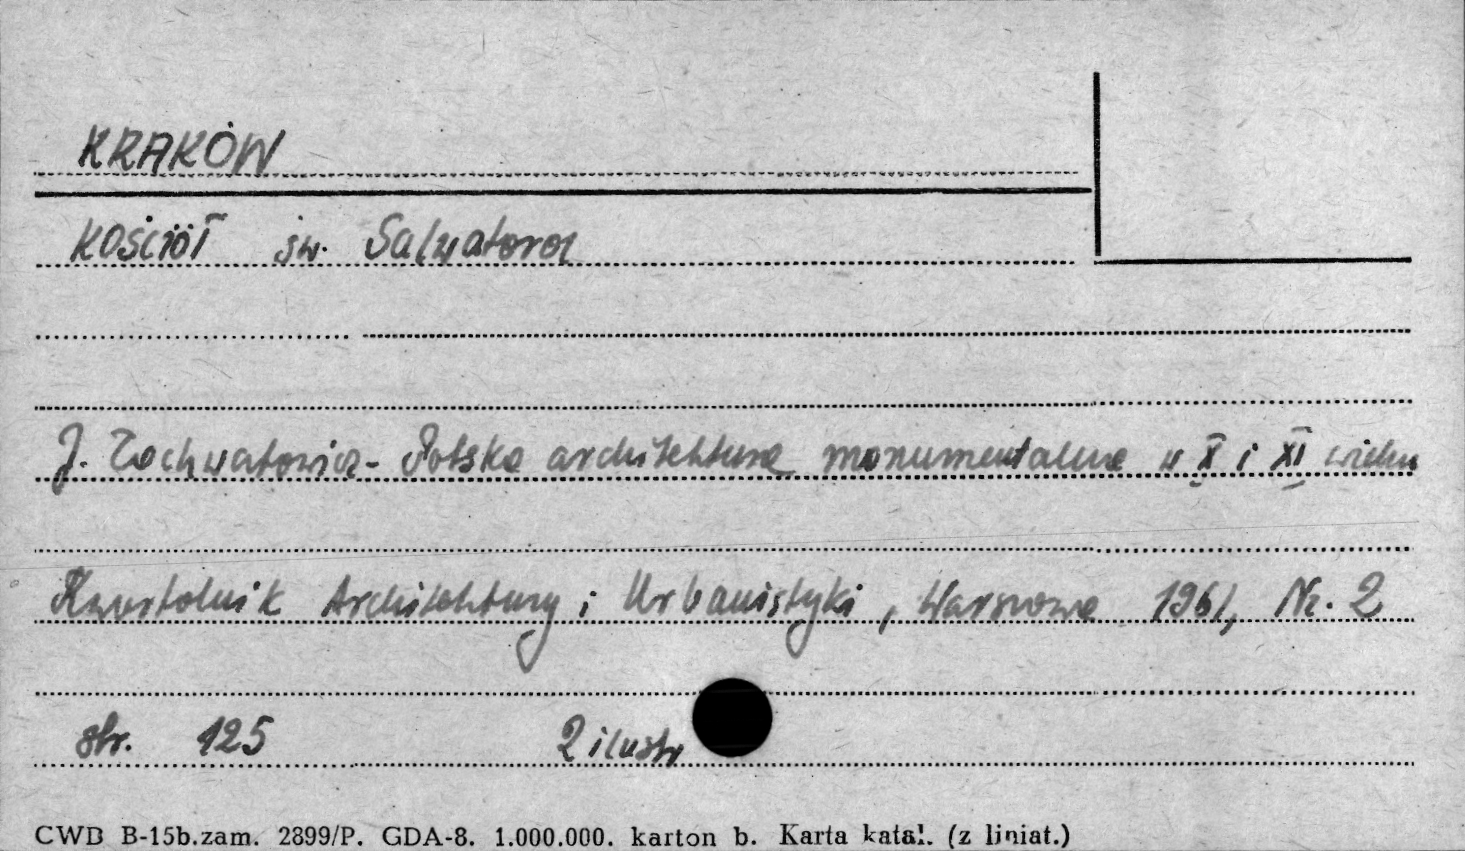 KRAKÓW
KOŚCIÓŁ św. Salwatora
J. Zachwatowicz - Polska architektura monumentalna w X i XI wieku
Kwartalnik Architektury i Urbanistyki, Warszawa 1961, Nr. 2
str. 125 2 ilustr
CWD B-15b.zam. 2899/P. GDA-8. 1.000.000. karton b. Karta katal. (z liniat.)